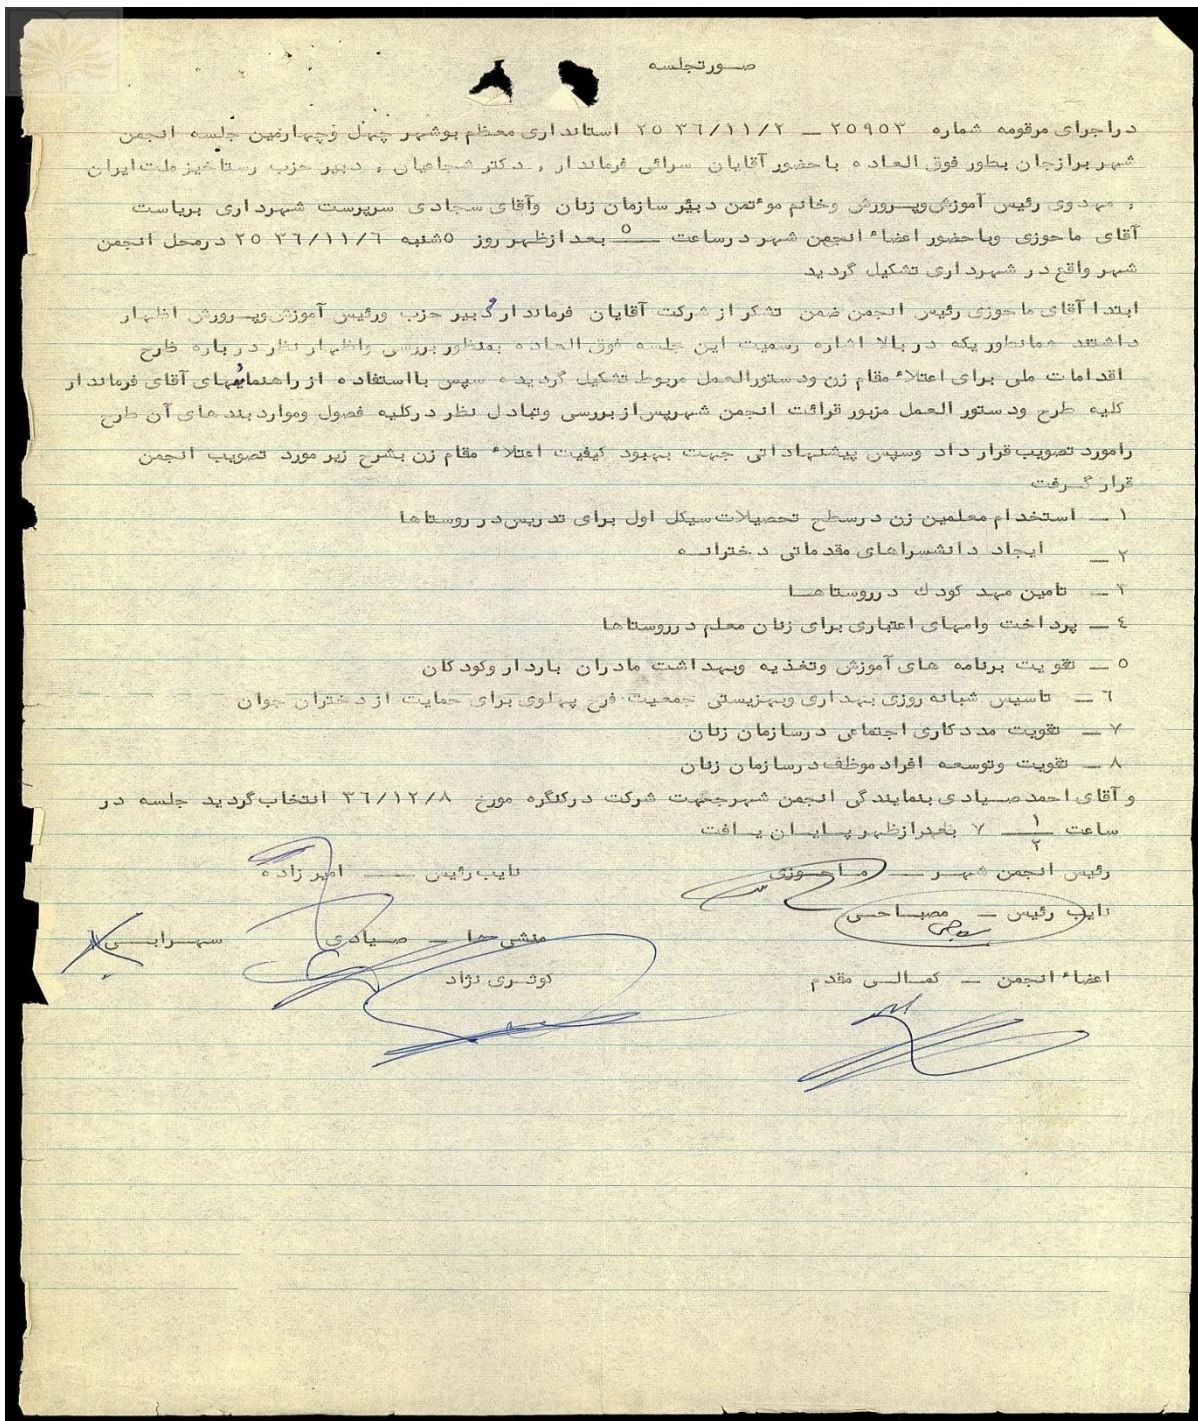 صورتجلسه
دراجرای مرقومه شماره ۲۵۹۵۳ ــ ۲۵۳۶/۱۱/۲ استانداری معظم بوشهر چهل وچهارمین جلسه انجمن
شهر برازجان بطور فوق العاده باحضور آقایان سرائی فرماندار , دکتر شجاعیان , دبیر حزب رستاخیز ملت ایران
, مهدوی رئیس آموزش وپرورش وخانم موٴتمن دبیر سازمان زنان وآقای سجادی سرپرست شهرداری بریاست
آقای ماحوزی وباحضور اعضاٴ انجمن شهر درساعت ۵ بعدازظهر روز ۵شنبه ۲۵۳۶/۱۱/۶ درمحل انجمن
شهر واقع در شهرداری تشکیل گردید
ابتدا آقای ماحوزی رئیس انجمن ضمن تشکر از شرکت آقایان فرماندار و دبیر حزب ورئیس آموزش وپرورش اظهار
داشتند همانطوریکه در بالا اشاره رسمیت این جلسه فوق العاده بمنظور بررسی واظهار نظر در باره طرح
اقدامات ملی برای اعتلاٴ مقام زن ودستورالعمل مربوط تشکیل گردیده سپس بااستفاده از راهنمائیهای آقای فرماندار
کلیه طرح ودستور العمل مزبور قرائت انجمن شهرپس از بررسی وتبادل نظر درکلیه فصول وموارد بندهای آن طرح
رامورد تصویب قرار داد وسپس پیشنهاداتی جهت بهبود کیفیت اعتلاٴ مقام زن بشرح زیر مورد تصویب انجمن
قرار گرفت
۱ ــ استخدام معلمین زن درسطح تحصیلات سیکل اول برای تدریس در روستاها
۲ ــ ایجاد دانشسراهای مقدماتی دخترانه
۳ ــ تامین مهد کودك درروستاها
٤ ــ پرداخت وامهای اعتباری برای زنان معلم درروستاها
۵ ــ تقویت برنامه های آموزش وتغذیه وبهداشت مادران باردار وکودکان
٦ ــ تاسیس شبانه روزی بهداری وبهزیستی جمعیت فرح پهلوی برای حمایت از دختران جوان
۷ ــ تقویت مددکاری اجتماعی درسازمان زنان
۸ ــ تقویت وتوسعه افراد موظف درسازمان زنان
و آقای احمد صیادی بنمایندگی انجمن شهرجهت شرکت درکنگره مورخ ۳۶/۱۲/۸ انتخاب گردید جلسه در
ساعت ۱/۲ ۷ بعدازظهر پایان یافت
رئیس انجمن شهر ــ ماحوزی نایب رئیس ــ امیرزاده
نایب رئیس ــ مصباحی
منشی ها ــ صیادی سهرابی
اعضاٴ انجمن ــ کمالی مقدم کوثری نژاد